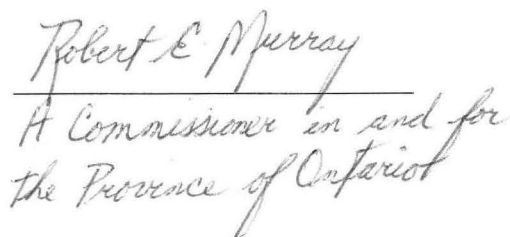 Robert E. Murray
A Commissioner in and for
the Province of Ontario